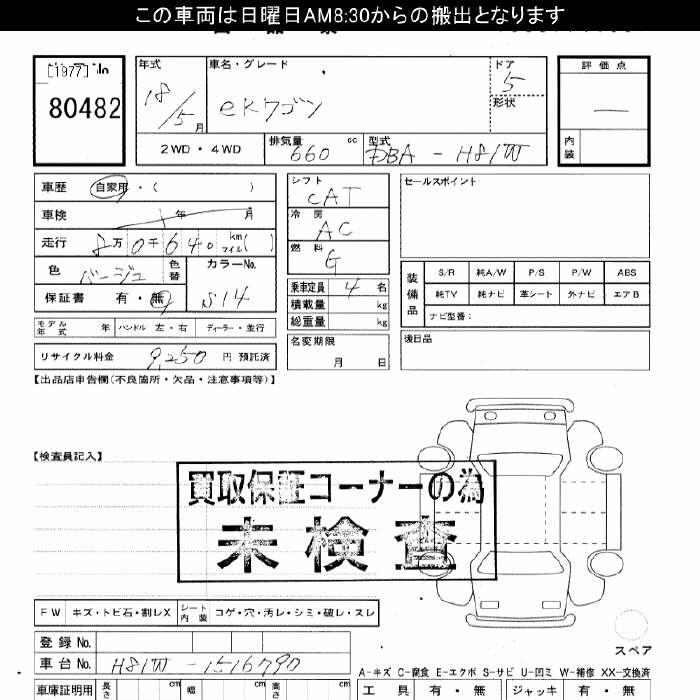 この車両は日曜日AM8:30からの搬出となります
[1977] No
80482
年式 車名・グレード ドア 評価点
18/5月 eKワゴン 5
形状
2WD・4WD 排気量 660 cc 型式 DBA-H81W 内装
車歴 自家用・( )
シフト CAT
セールスポイント
車検 年 月
冷房 AC
走行 8万0千640 km マイル( )
燃料 G
色 ベージュ 色替 カラーNo. S14
保証書 有・無
乗車定員 4名
積載量 kg
総重量 kg
装備品 S/R 純A/W P/S P/W ABS
純TV 純ナビ 革シート 外ナビ エアB
ナビ型番:
モデル年式 年 ハンドル 左・右 ディーラー・並行
名変期限 月 日
後日品
リサイクル料金 9,250 円 預託済
【出品店申告欄(不良箇所・欠品・注意事項等)】
【検査員記入】
買取保証コーナーの為
未検査
FW キズ・トビ石・割レX シート内装 コゲ・穴・汚レ・シミ・破レ・スレ
スペア
登録No.
車台No. H81W-1516790
A-キズ C-腐食 E-エクボ S-サビ U-凹ミ W-補修 XX-交換済
車庫証明用 長さ cm 幅 cm 高さ cm 工具 有・無 ジャッキ 有・無